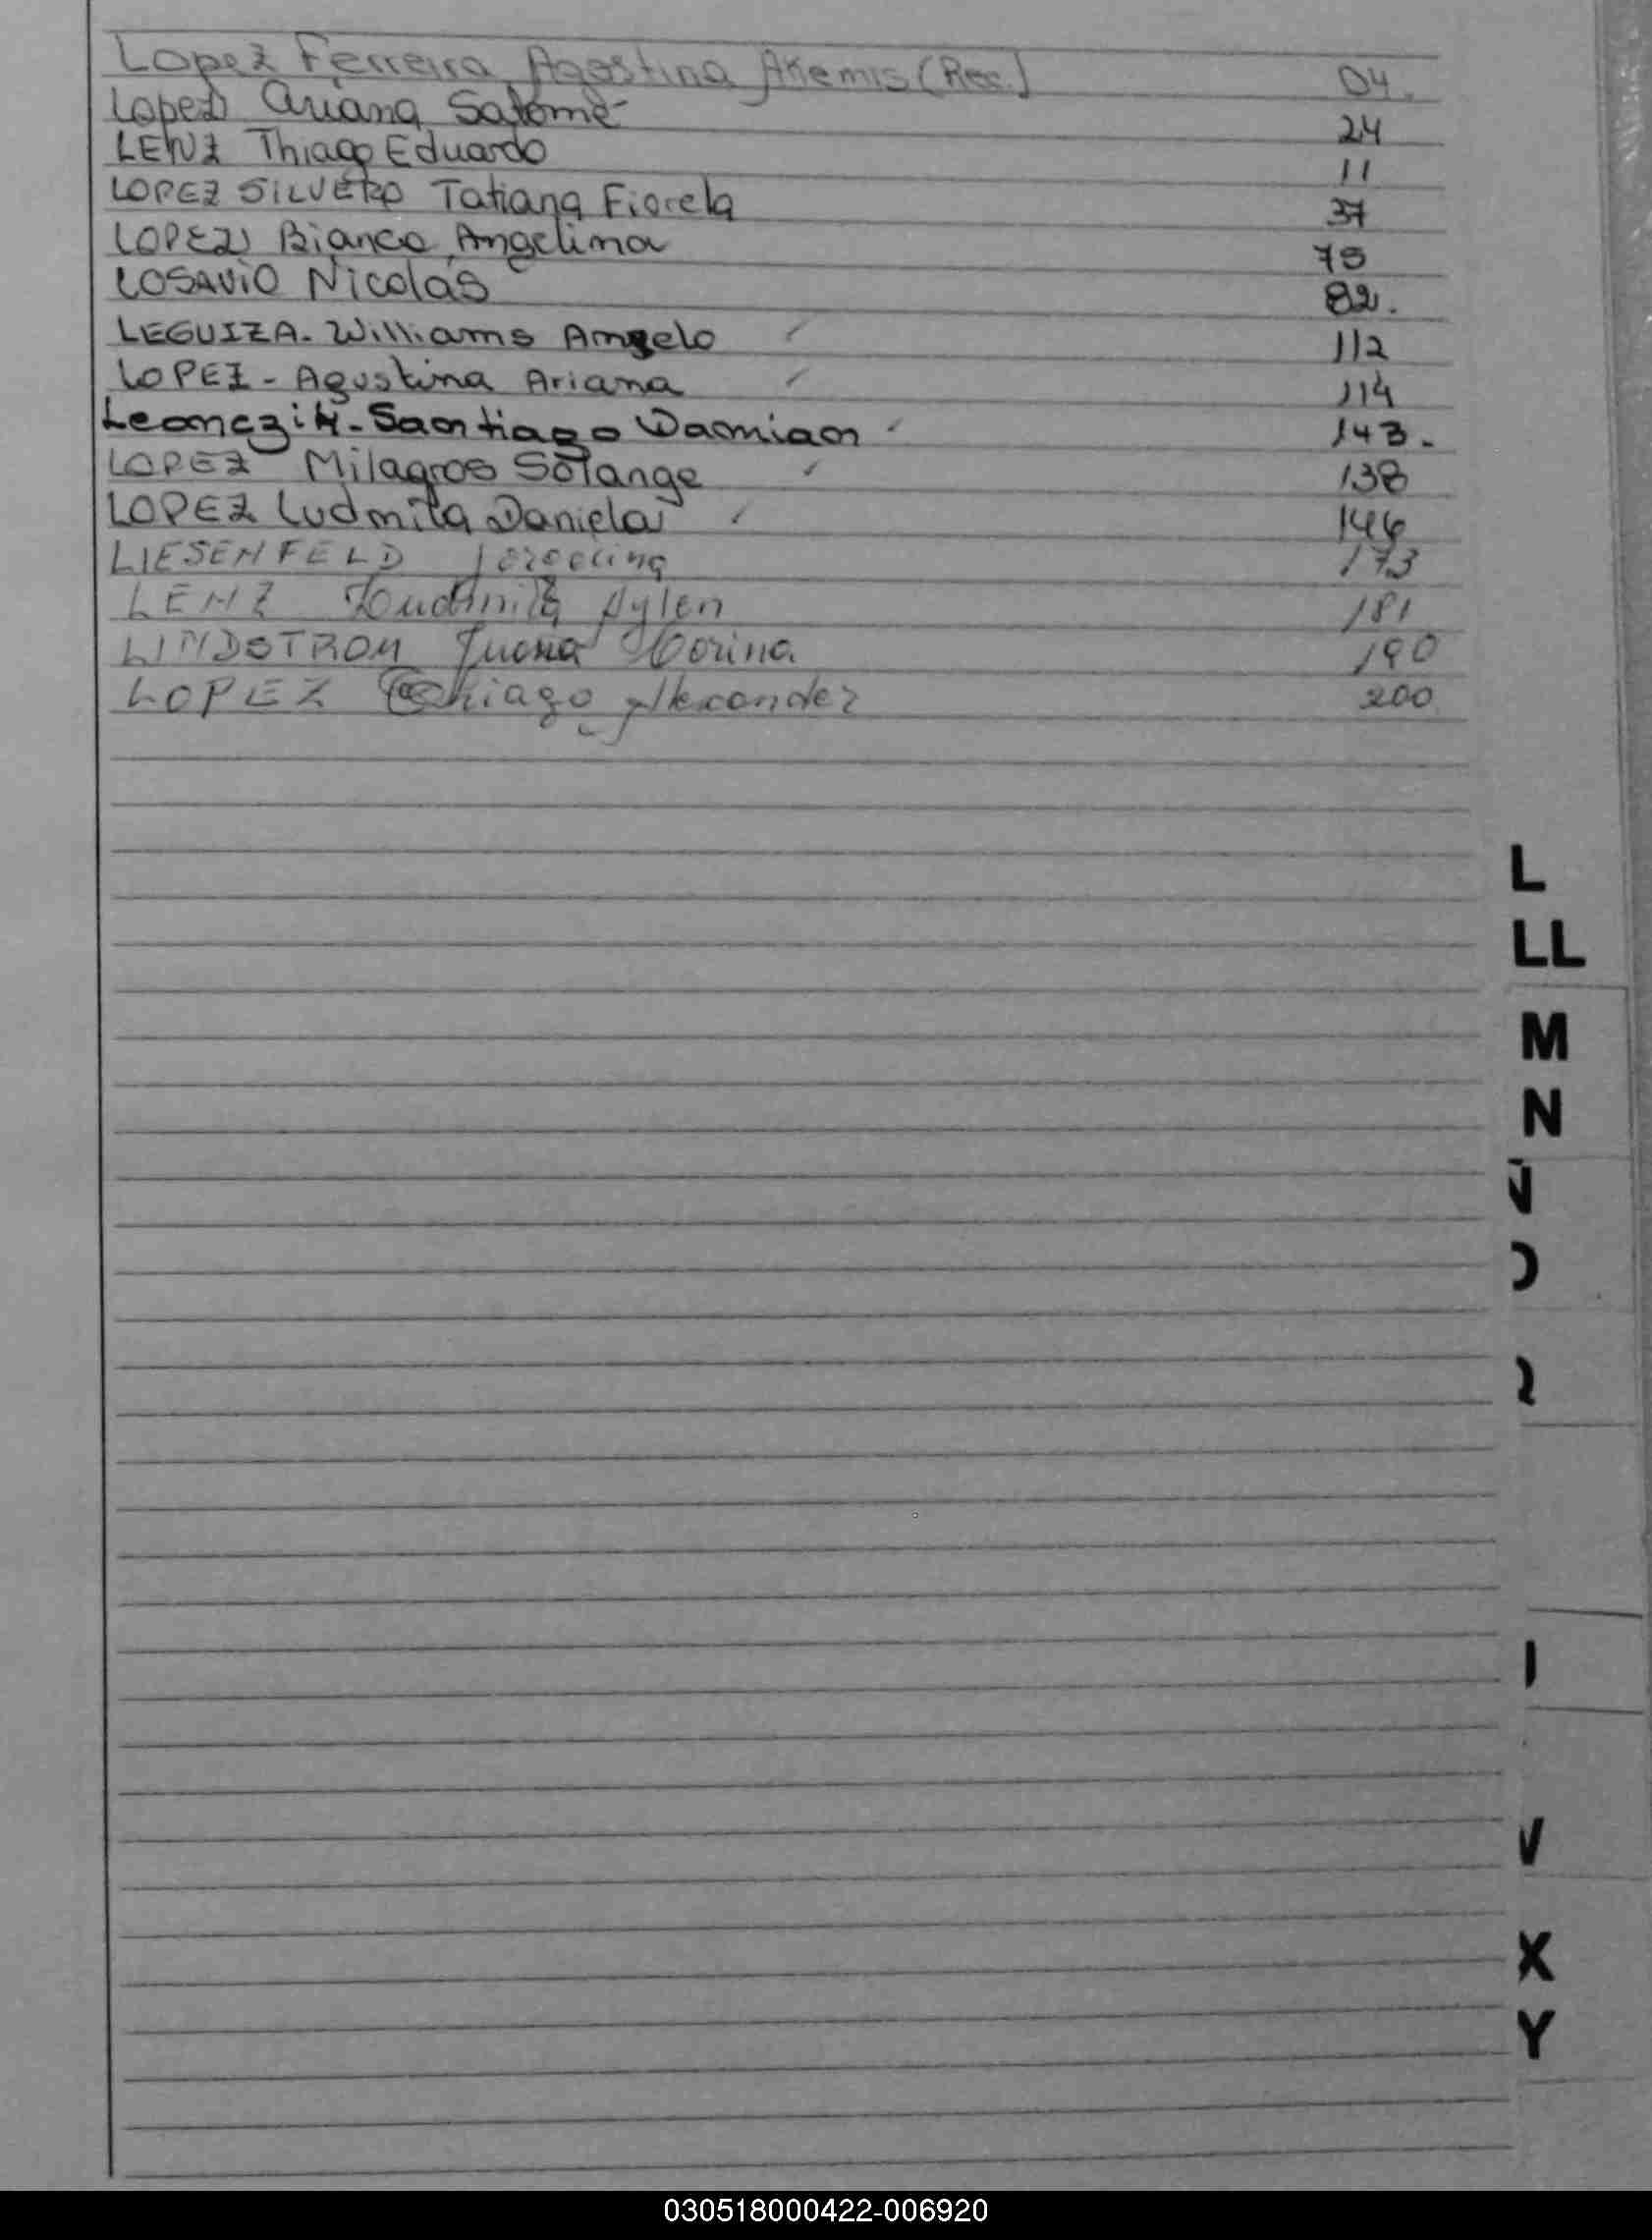 Lopez Ferreira Agostina Akemis (Rec.) 04.
Lopez Ariana Salomé 24
LENZ Thiago Eduardo 11
LOPEZ SILVERO Tatiana Fiorela 37
LOPEZ Bianca Angelina 75
LOSAVIO Nicolás 82.
LEGUIZA. Williams Angelo 112
LOPEZ - Agustina Ariana 114
Leonczik - Santiago Damian 143.
LOPEZ Milagros Solange 138
LOPEZ Ludmila Daniela 146
LIESENFELD 173
LENZ Ludmila Aylen 181
LINDSTROM Juana 190
LOPEZ Thiago Alexander 200
L
LL
M
N
V
X
Y
030518000422-006920